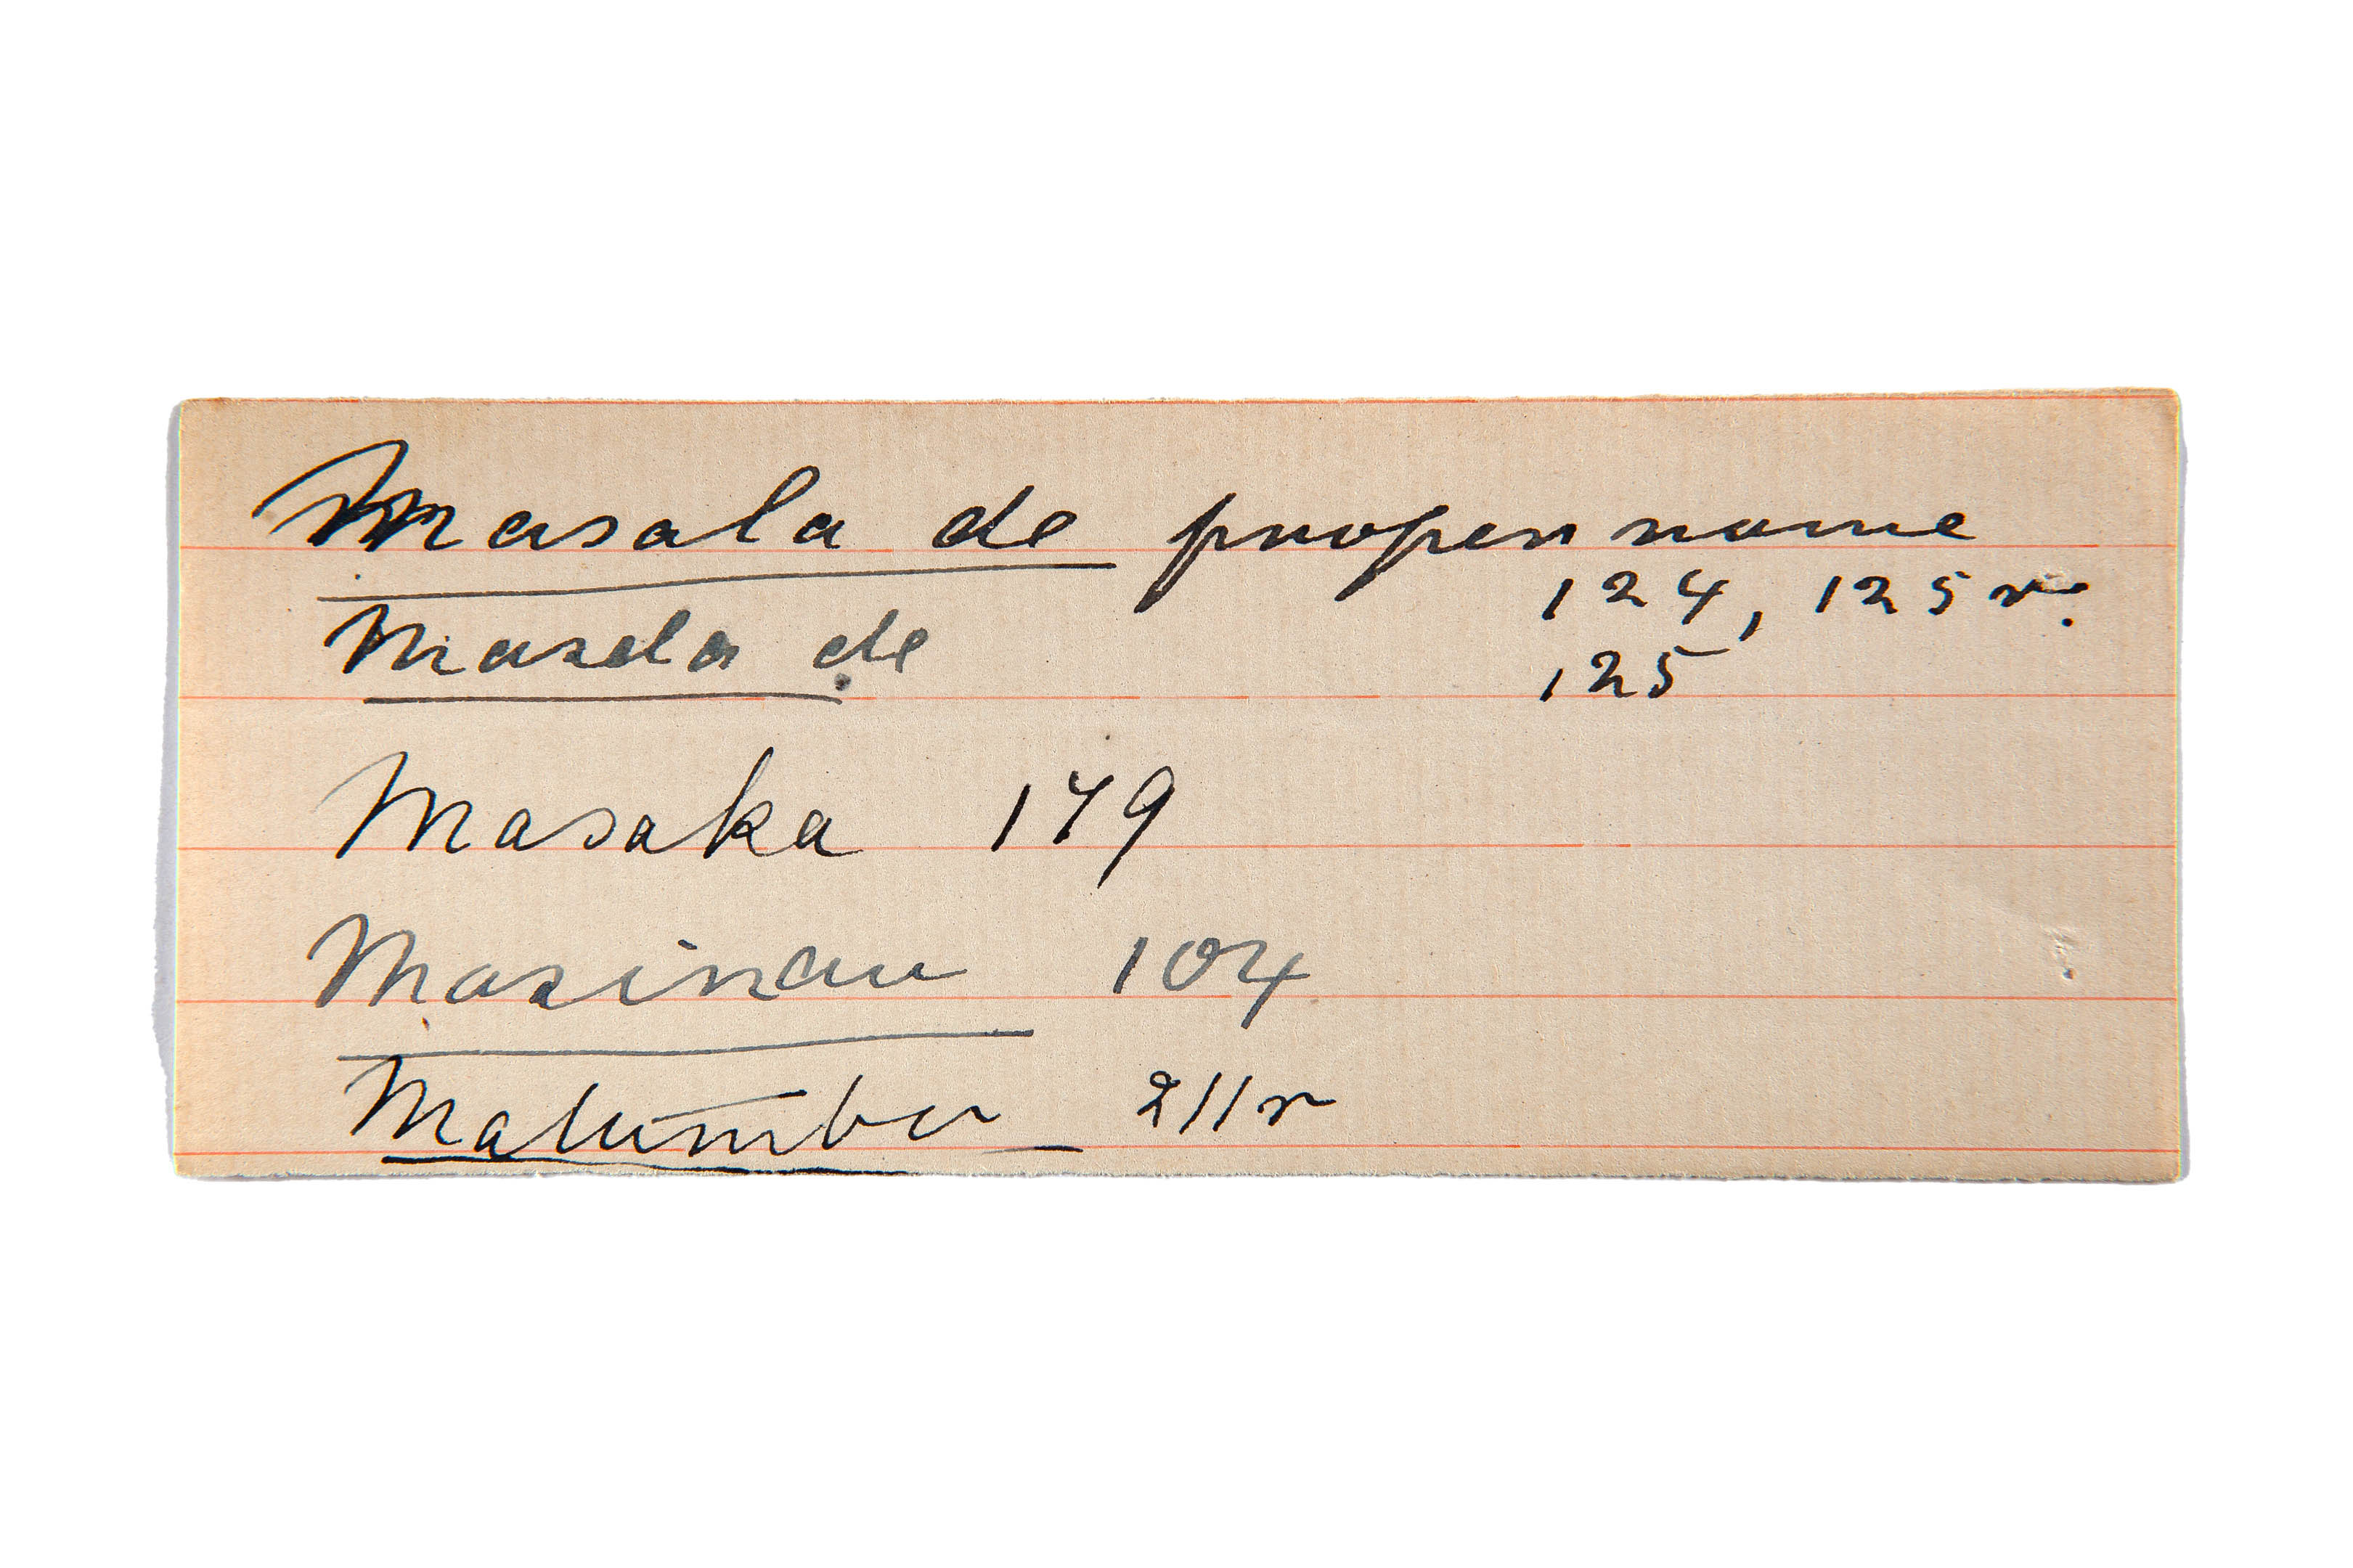 Masala de proper name
124, 125 r.
Masala de 125
Masaka 179
Masinau 104
Matumba 211r